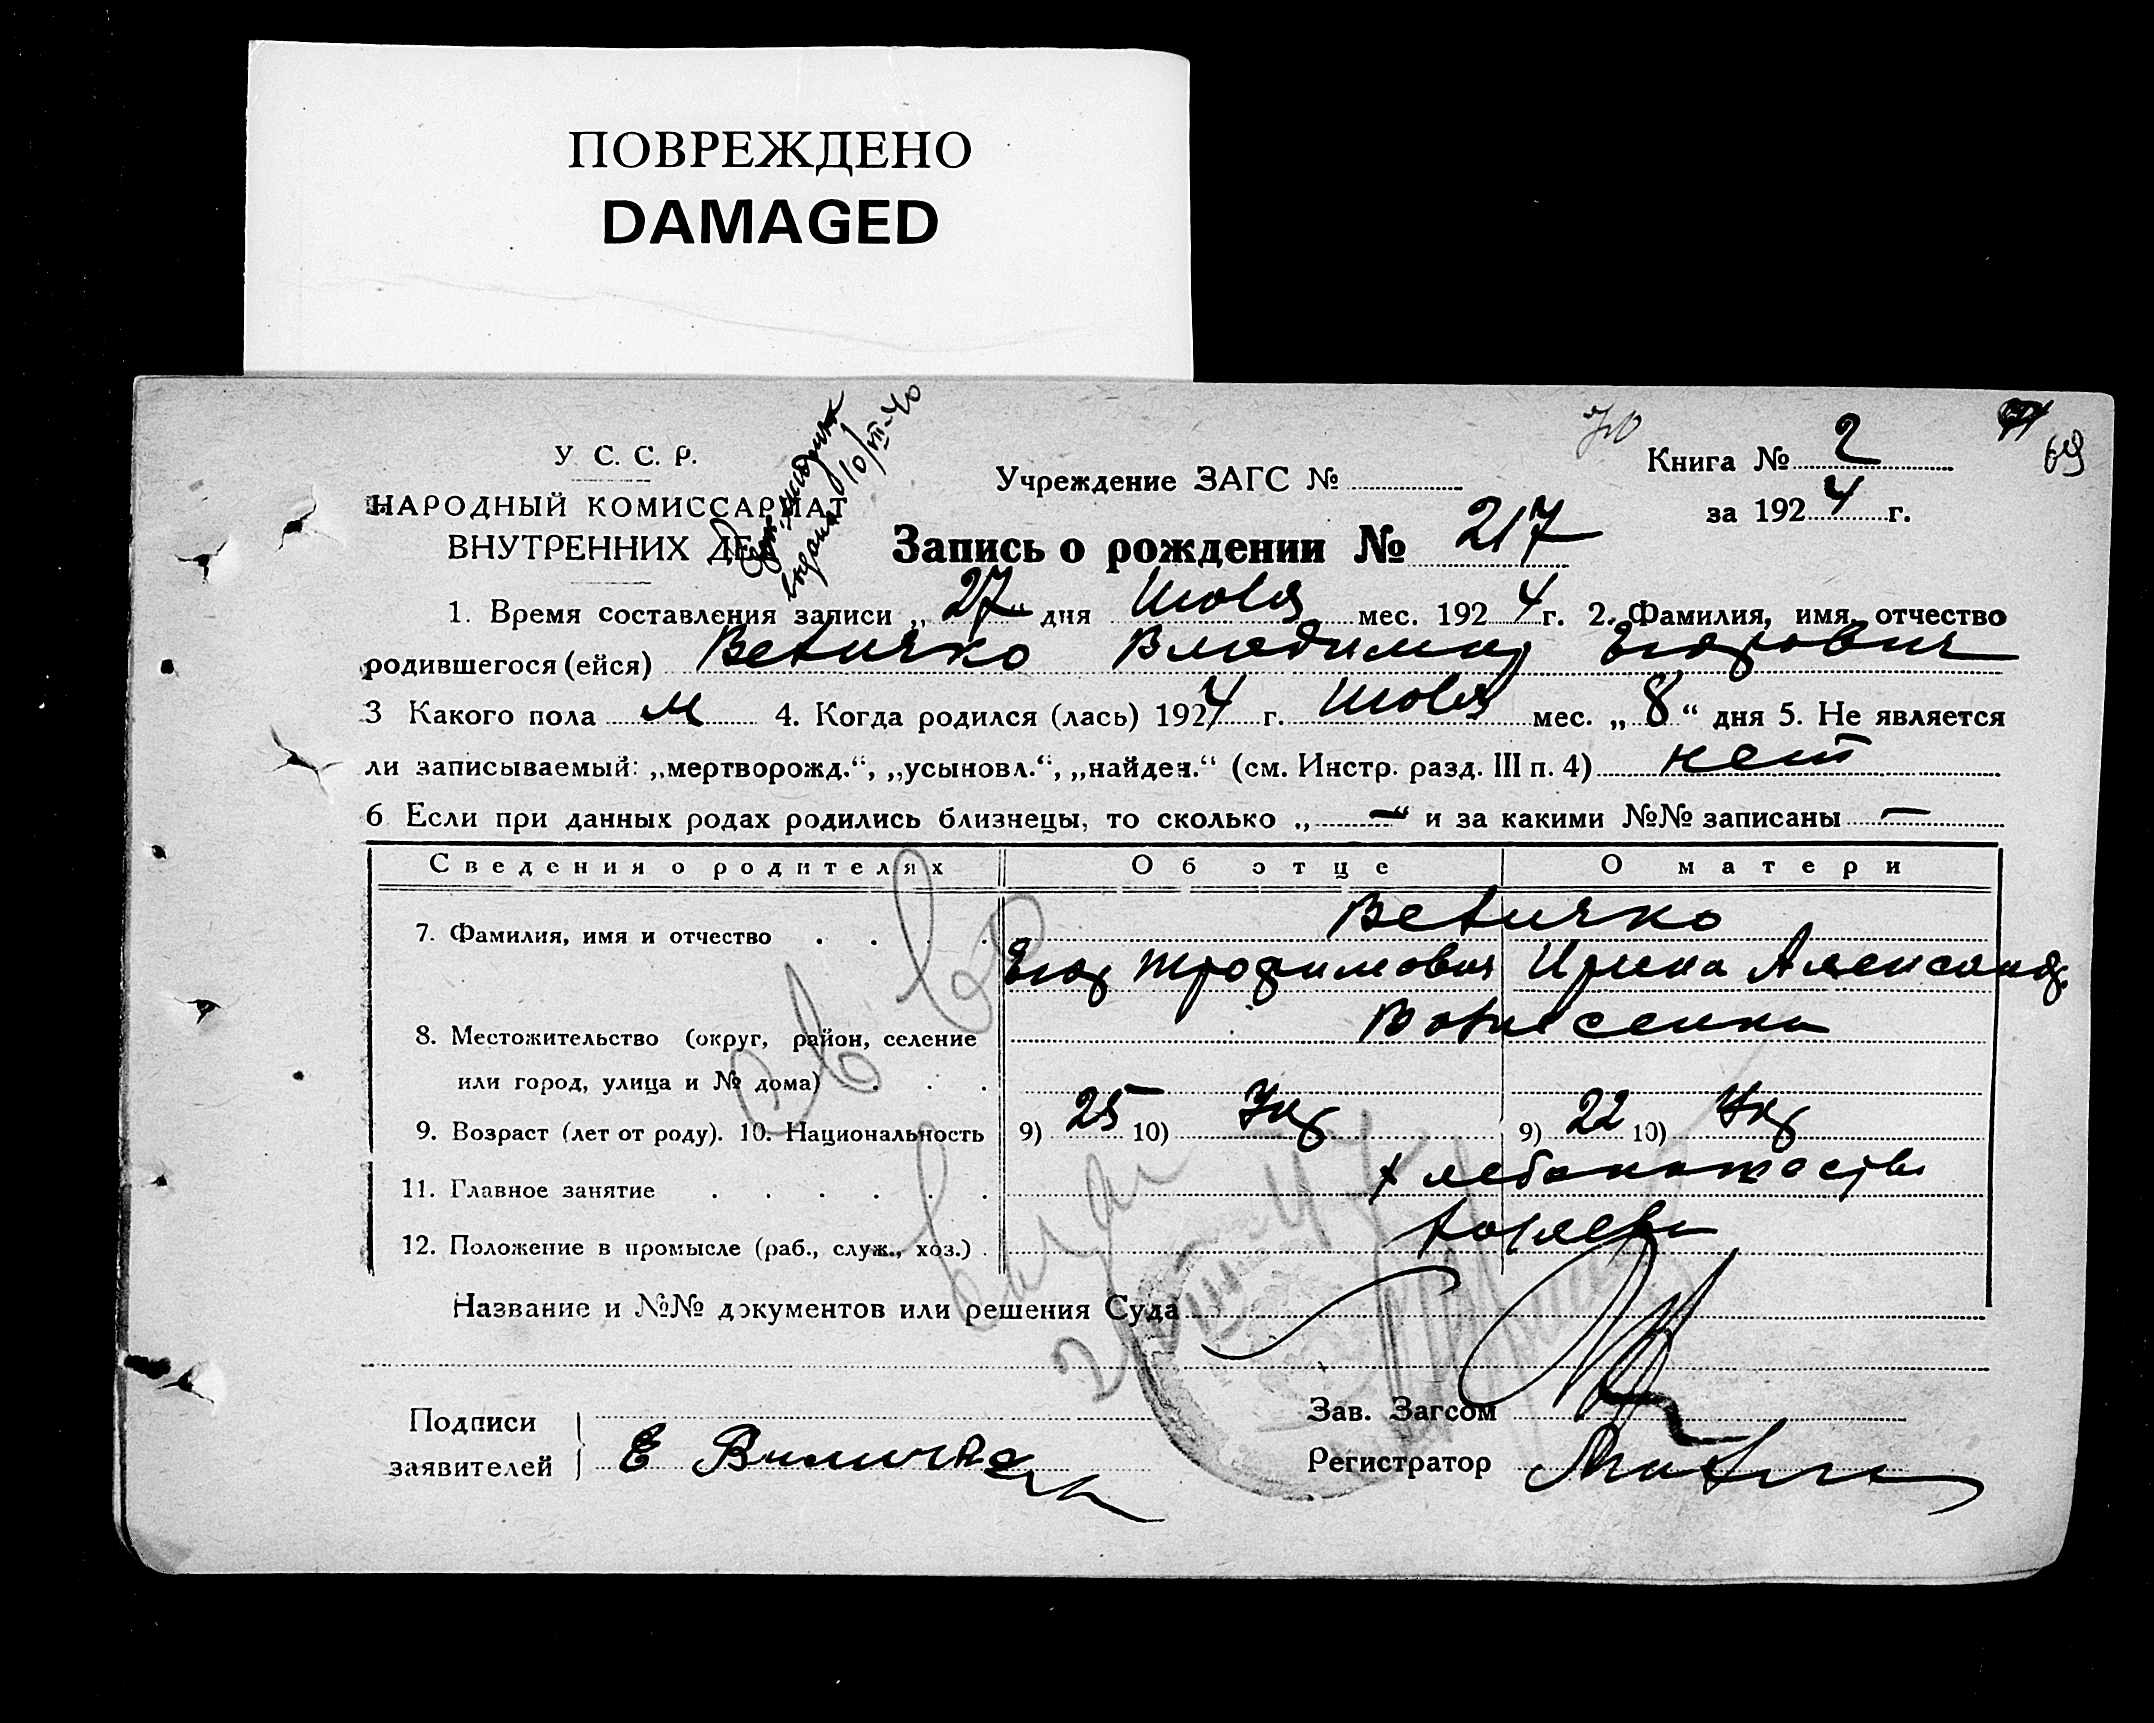 ПОВРЕЖДЕНО
DAMAGED
70
69
У. С. С. Р.
НАРОДНЫЙ КОМИССАРИАТ
ВНУТРЕННИХ ДЕЛ
10/VII-40
Учреждение ЗАГС №
Книга № 2
за 1924 г.
Запись о рождении № 217
1. Время составления записи „27“ дня Июля мес. 1924 г. 2. Фамилия, имя, отчество
родившегося (ейся) Величко Владимир Егорович
3 Какого пола м 4. Когда родился (лась) 1924 г. Июля мес. „8“ дня 5. Не является
ли записываемый: „мертворожд.“, „усыновл.“, „найден.“ (см. Инстр. разд. III п. 4) нет
6 Если при данных родах родились близнецы, то сколько „—“ и за какими №№ записаны —
Сведения о родителях Об отце О матери
Величко
7. Фамилия, имя и отчество . . . .
Егор Трофимович Ирина Александр.
8. Местожительство (округ, район, селение
или город, улица и № дома) . . .
9. Возраст (лет от роду). 10. Национальность 9) 25 10) Укр 9) 22 10) Укр
11. Главное занятие . . . . . . хлебопашество
12. Положение в промысле (раб., служ., хоз.) .
Название и №№ документов или решения Суда
Подписи
заявителей Е Величко
Зав. Загсом
Регистратор